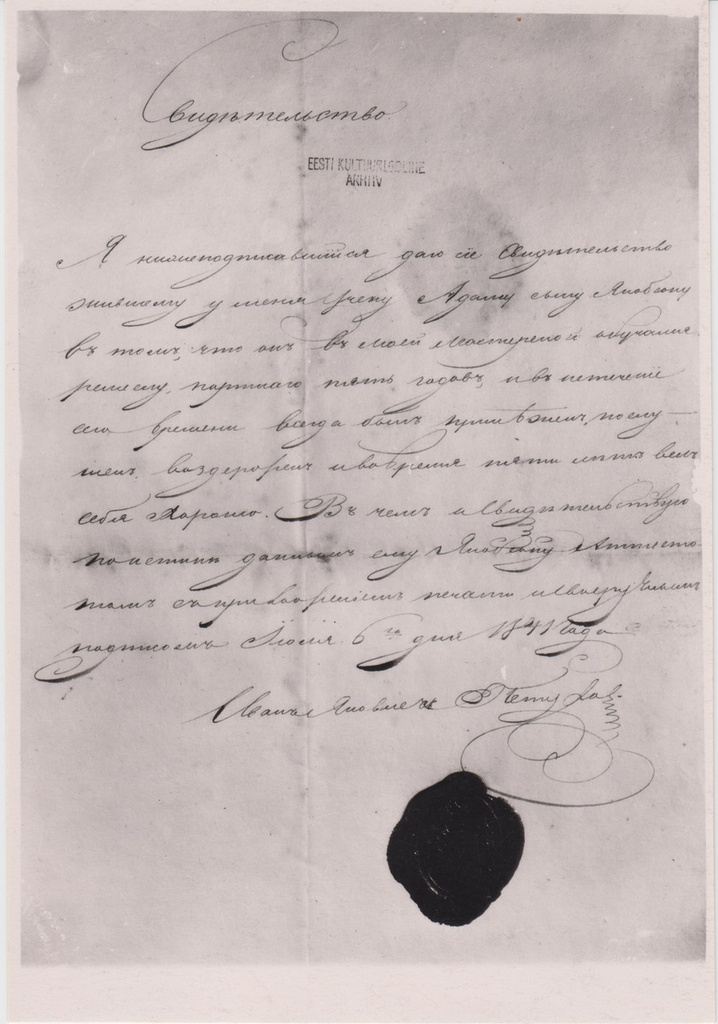 Свидѣтельство
EESTI KULTUURILOOLINE
ARHIIV
Я нижеподписавшійся даю сіе Свидѣтельство
жившему у меня Адаму сыну Якобсону
въ томъ, что онъ въ моей Мастерской обучался
ремеслу, портнаго пять годовъ, и въ истеченіе
сего времени всегда былъ прилѣжен, послу-
шен, и во время пяти лѣтъ велъ
себя Хорошо. Въ чемъ и Свидѣтельствую
поистинѣ даннымъ ему Аттеста
томъ съ печати и
подписомъ Іюля 6го дня 1841 Года
Иванъ Яковлевъ